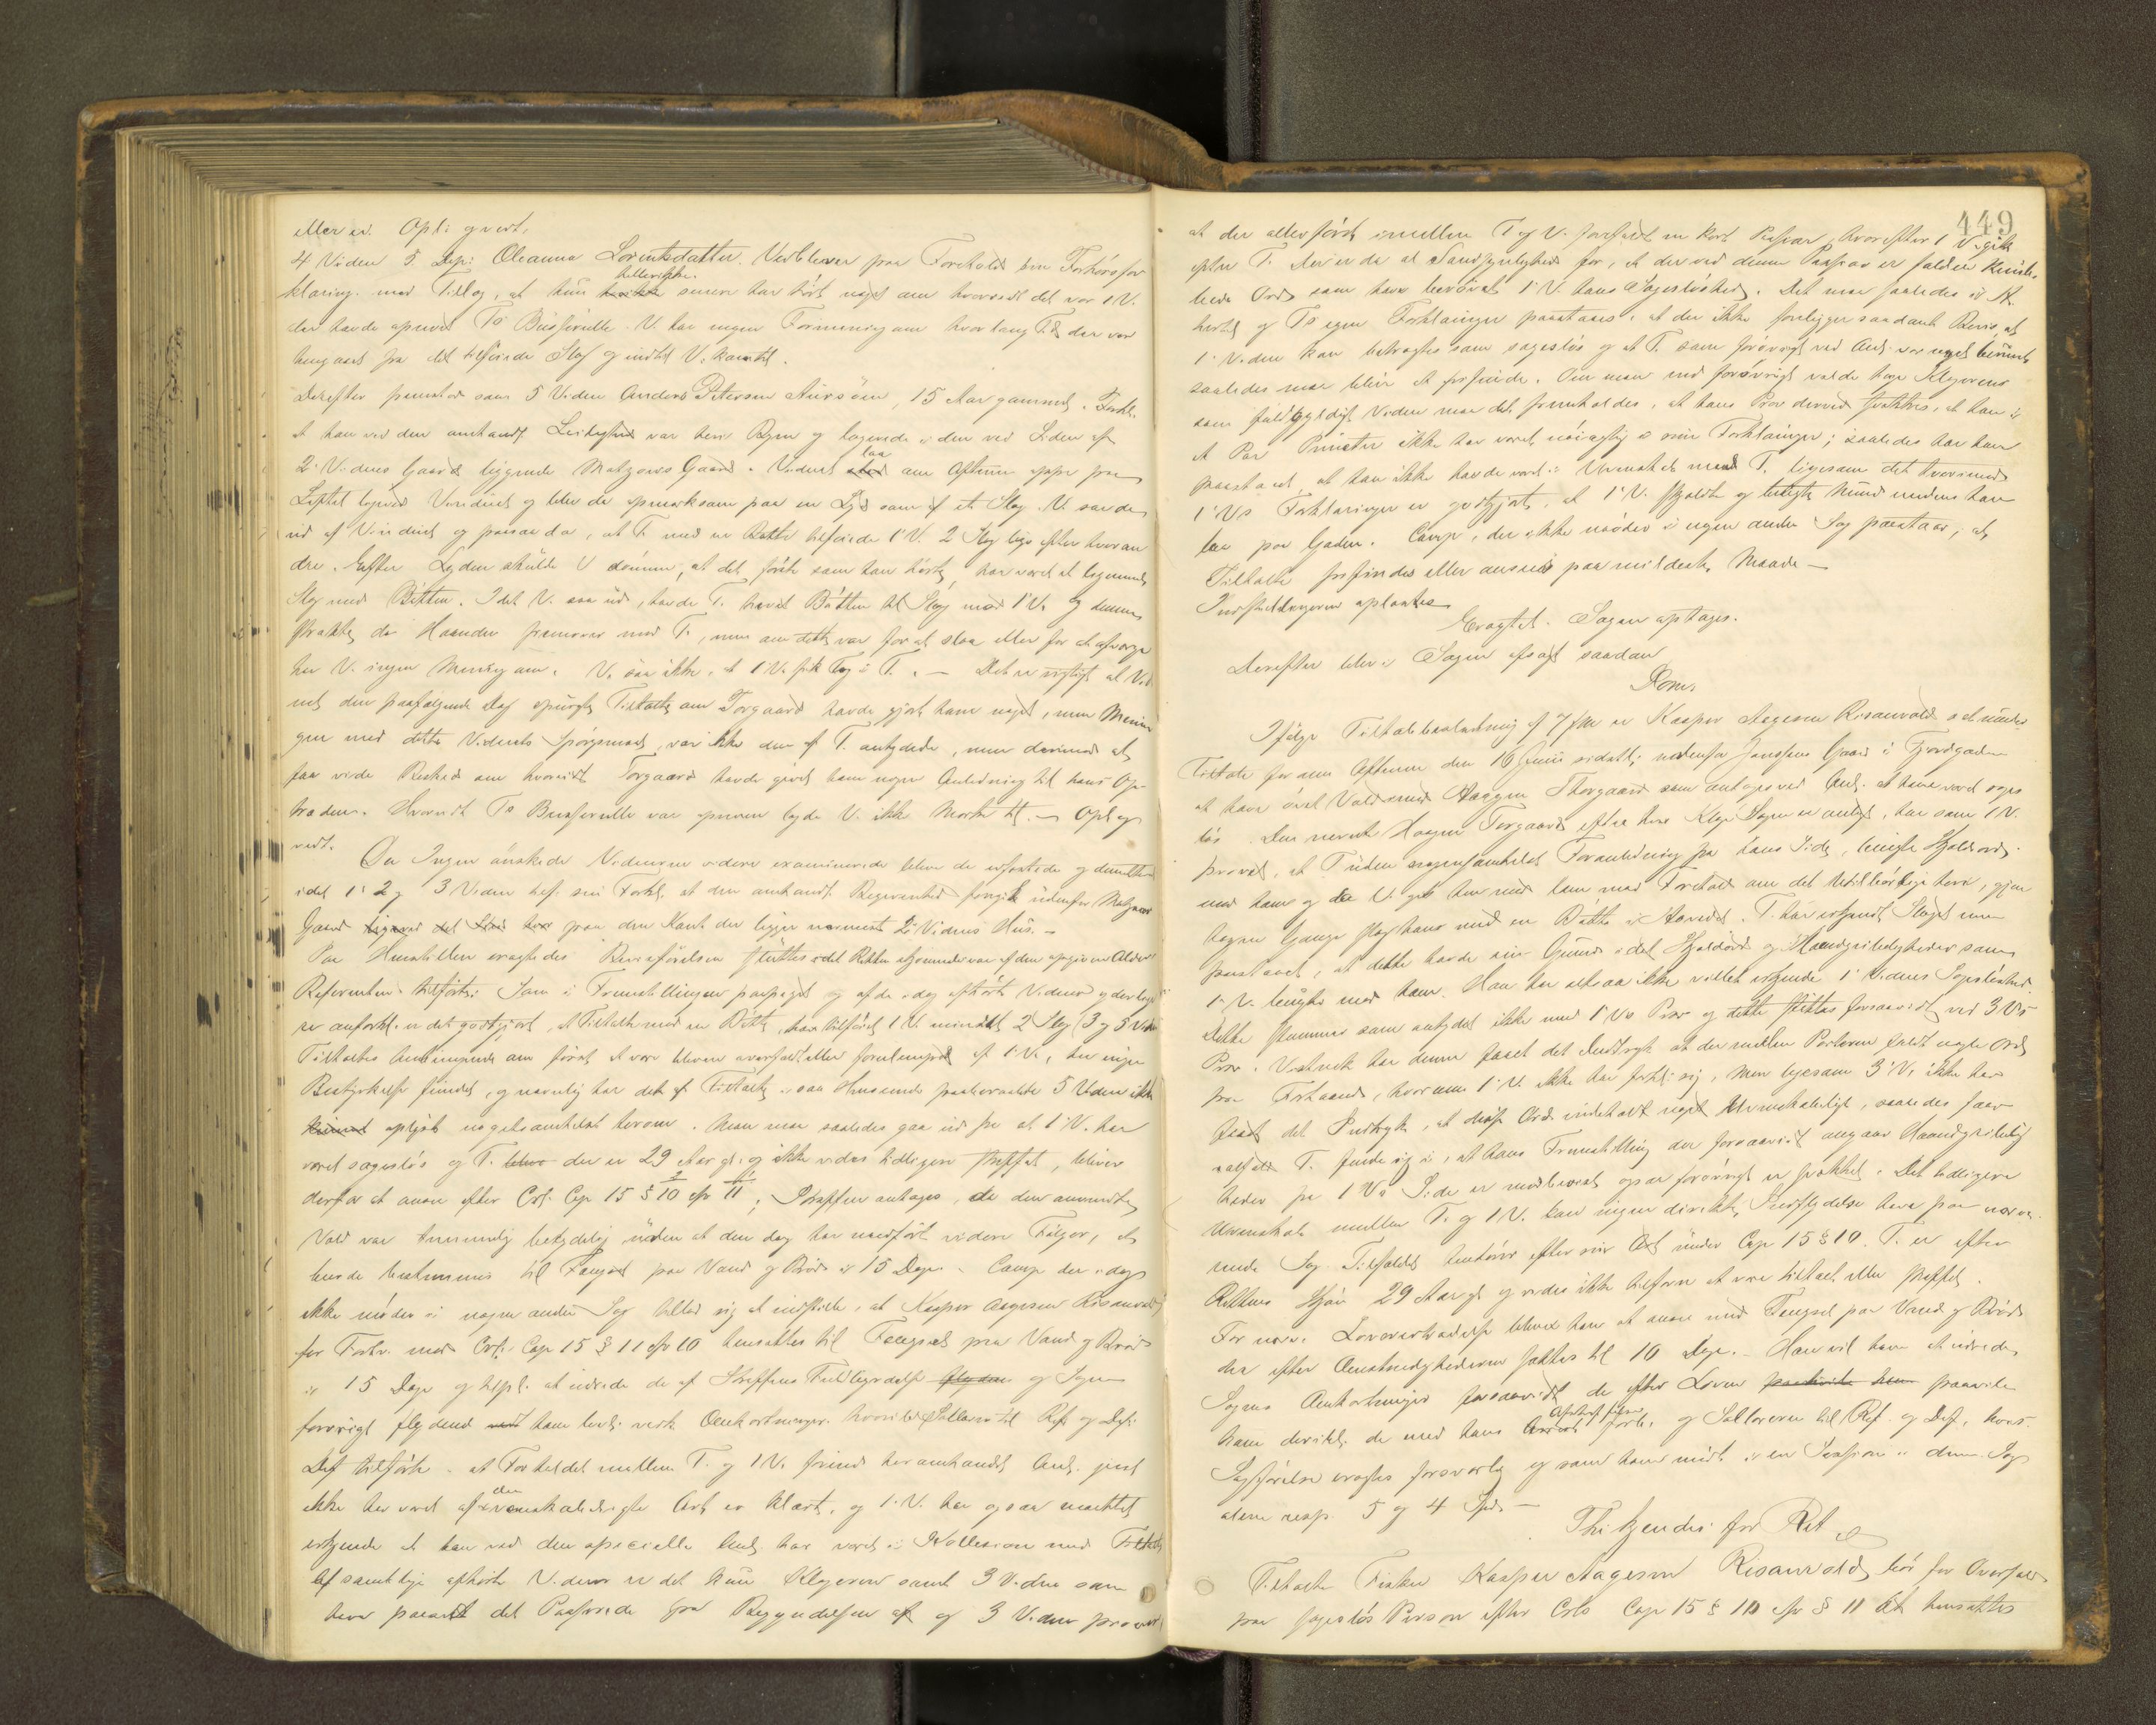 eller ed. Opl: og vedt.
4 Viden 5. Dep: Oleanna Lorentsdatter. Vedbliver paa Foreholdt sin Forhørsfor
klaring. med Tillæg, at hun hverken senere har hørt noget om hvorvidt det var 1 V.
der havde aprevet Ts Busserulle. V. har ingen Formening om hvor lang Tid der var
hengaaet fra det tilføiede Slag og indtil V. kom til.
Derefter fremstod som 5 Viden Anders Petersen Aursöen, 15 Aar gammel. Forkl.
at han ved den omhandl. Leilighed var her i Byen og logerede i den ved Siden af
2. Vidnes Gaard liggende Matzows Gaard. Vidnet stod laa om Aftenen oppe paa
Loftet ligeved Vinduet og blev da opmærksom paa en Lyd som af et Slag. V. saa da
ud af Vinduet og paasaa da, at T. med en Bøtte tilføiede 1' V. 2 Slag lige efter hveran
dre. Efter Lyden skulde V dømme, at det første som han hørte, har været et lignende
Slag med Bøtten. Idet V. saa ud, havde T. hævet Bøtten til Slag mod 1' V. og denne
strakte da Hænder fremover mod T., men om dette var for at slaa eller for at afværge
har V. ingen Mening om. V. saa ikke, at 1 V. fik Tag i T. . — Det er rigtigt at Vid
net den paafølgende Dag spurgte Tiltalte om Torgaard havde gjort ham noget, men Menin
gen med dette Vidnets Spørgsmaal, var ikke den af T. antydede, men derimod at
faa vide Besked om hvorvidt Torgaard havde givet ham nogen Anledning til hans Op-
træden. Hvorvidt Ts Busserulle var reven lagde V. ikke Mærke til. — Opl. og
vedt.
Da Ingen ønskede Vidnerne videre examinerede bleve de erfortede og dimitteret
idet 1' 2 og 3 Viden bef. sin Forkl. at den omhandl. Begivenhed foregik udenfor Matzows
Gaard ligeved det Sted hvor paa den Kant der ligger nærmest 2' Vidnes Hus. —
Paa Henstillen eragtedes Bevisførelsen sluttet idet Retten skjønnede var af den opgivne Alder.
Referenten tilførte: Som i Fremstillingen paapeget og af de idag afhørte Vidner yderligere
er anført er det godtgjort, at Tiltalte med en Bøtte, har tilføiet 1 V. mindst 2 Slag (3 og 5 Viden
Tiltaltes Anbringende om først at være bleven overfaldt eller forulempet af 1' V., har ingen
Bestyrkelse fundet, og navnlig har det af Tiltalte i saa Henseende paaberaabte 5 Viden ikke
kunnet oplyst nogetsomhelst herom. Man maa saaledes gaa ud fra at 1' V. har
været sagesløs og T. bliver der er 29 Aar gl. og ikke vides tidligere straffet, bliver
derfor at anse efter Crl. Cap 15 § 10 cfr 11; Straffen antages, da den anvendte
Vold var temmelig betydelig uden at den dog har medført videre Følger, at
burde bestemmes til Fængsel paa Vand og Brød i 15 Dage. Comp. der idag
ikke møder i nogen anden Sag tillod sig at indstille, at Kasper Aagesen Risanvold
for Forbr. mod Crl. Cap 15 § 11 cfr 10 hensættes til Fængsel paa Vand og Brød
i 15 Dage og tilpl. at udrede de af Straffens Fuldbyrdelse flydende og Sagens
forøvrigt flydende ved ham lovl. virk. Omkostninger. hvoriblandt Sallairer til Ref. og Def.
Def tilførte. at Forholdet mellem T. og 1 V. forud her omhandlet Anl. just
ikke har været af den venskabeligste Art er klart, og 1' V. har ogsaa maattet
erkjende at han ved den specielle Anl. har været i Kollision med Tiltalte
Af samtlige afhørte Vidner er det kun Klageren samt 3 Vidne som
have paaseet det Passerede fra Begyndelsen af og 3 Vidne provet
449
at der allerførst imellem T og V. forefaldt en kort Passiar, hvorefter 1 V. gik
efter T. Der er da al Sandsynlighed for, at der ved denne Passiar er faldne krænk-
kende Ord som have berøvet 1' V hans Sagesløshed. Det maa saaledes
og Ts egen Forklaringer paastaaes, at der ikke foreligger saadant Bevis at
1' Viden kan betragtes som sagesløs og at T. som forøvrigt ved Anl. var noget beruset
saaledes maa blive at frifinde. Om man end forøvrigt vilde tage Klagerens
som fuldt gyldigt Viden maa det fremholdes, at hans Prov derved svækkes, at han i
et Par Punkter ikke har været nøiagtig i sin Forklaringer; saaledes har han
paastaaet, at han ikke havde været i Uvenskab med T. ligesom det tvertimod
1' Vs Forklaringer er godtgjort, at 1' V. skjældte og brugte Mund medens han
laa paa Gaden. Comp, der ikke møder i nogen anden Sag paastaar, at
Tiltalte frifindes eller ansees paa mildeste Maade —
Indstillingerne oplæstes
Eragtet. Sagen optages.
Derefter blev i Sagen afsagt saadan
Dom.
Ifølge Tiltalebeslutning af 7 f.M. er Kasper Aagesen Risanvold sat under
Tiltale for om Aftenen den 16 Juni sidstl. nedenfor Janssens Gaard i Fjordgaden
at have øvet Vold mod Haagen Thorgaard som antages ved Anl. at have været sages
løs. Den nævnte Haagen Torgaard efter hvis Klage Sagen er anlagt, har som 1 V.
provet, at T uden nogensomhelst Foranledning fra hans Side, brugte Skjeldsord
mod ham og da V. gik hen mod ham med Forehold om det utilbørlige heri, gjen
tagne Gange slog ham med en Bøtte i Hovedet. T. har erkjendt Slaget men
paastaaet, at dette havde sin Grund i det Skjeldsord og Haandgribeligheder som
1' V. brugte mod ham. Han har altsaa ikke villet erkjende 1' Vidnes Sagesløshed.
Dette stemmer som antydet ikke med 1' Vs Prov og dette støttes forsaavidt ved 3 Vs
Prov. Vistnok har denne faaet det Indtryk at der mellem Parterne faldt nogle Ord
paa Forhaand, hvorom 1' V. ikke har forkl. sig, men ligesom 3' V. ikke har
faaet det Indtryk, at disse Ord indeholdt noget Uvenskabeligt, saaledes faar
ialfald T. finde sig i, at hans Fremstilling der forsaavidt angaar Haandgribelig
heder fra 1 Vs Side er modbevist ogsaa forøvrigt er svækket. Det tidligere
Uvenskab mellem T. og 1 V. kan ingen direkte Indflydelse have paa nærvæ-
rende Sag. Tilfældet henhører efter sin Art under Cap 15 § 10. T. er efter
Rettens Skjøn 29 Aar gl. og vides ikke tilforn at være tiltalt eller straffet.
For nærv. Lovovertrædelse bliver han at anse med Fængsel paa Vand og Brød
der efter Omstændighederne sættes til 10 Dage. — Han vil have at udrede
Sagens Omkostninger forsaavidt de efter Loven paahvile ham paahvile
ham deribl. de med hans Arrest forb. og Sallairer til Ref. og Def, hvis
Sagførelse eragtes forsvarlig og som have mødt i en Session i denne Sag
alene resp. 5 og 4 Spd. —
Thi kjendes for Ret
Tiltalte Fisker Kasper Aagesen Risanvold bør for Overfald
paa sagesløs Person efter Crls Cap 15 § 10 cfr § 11 at hensættes